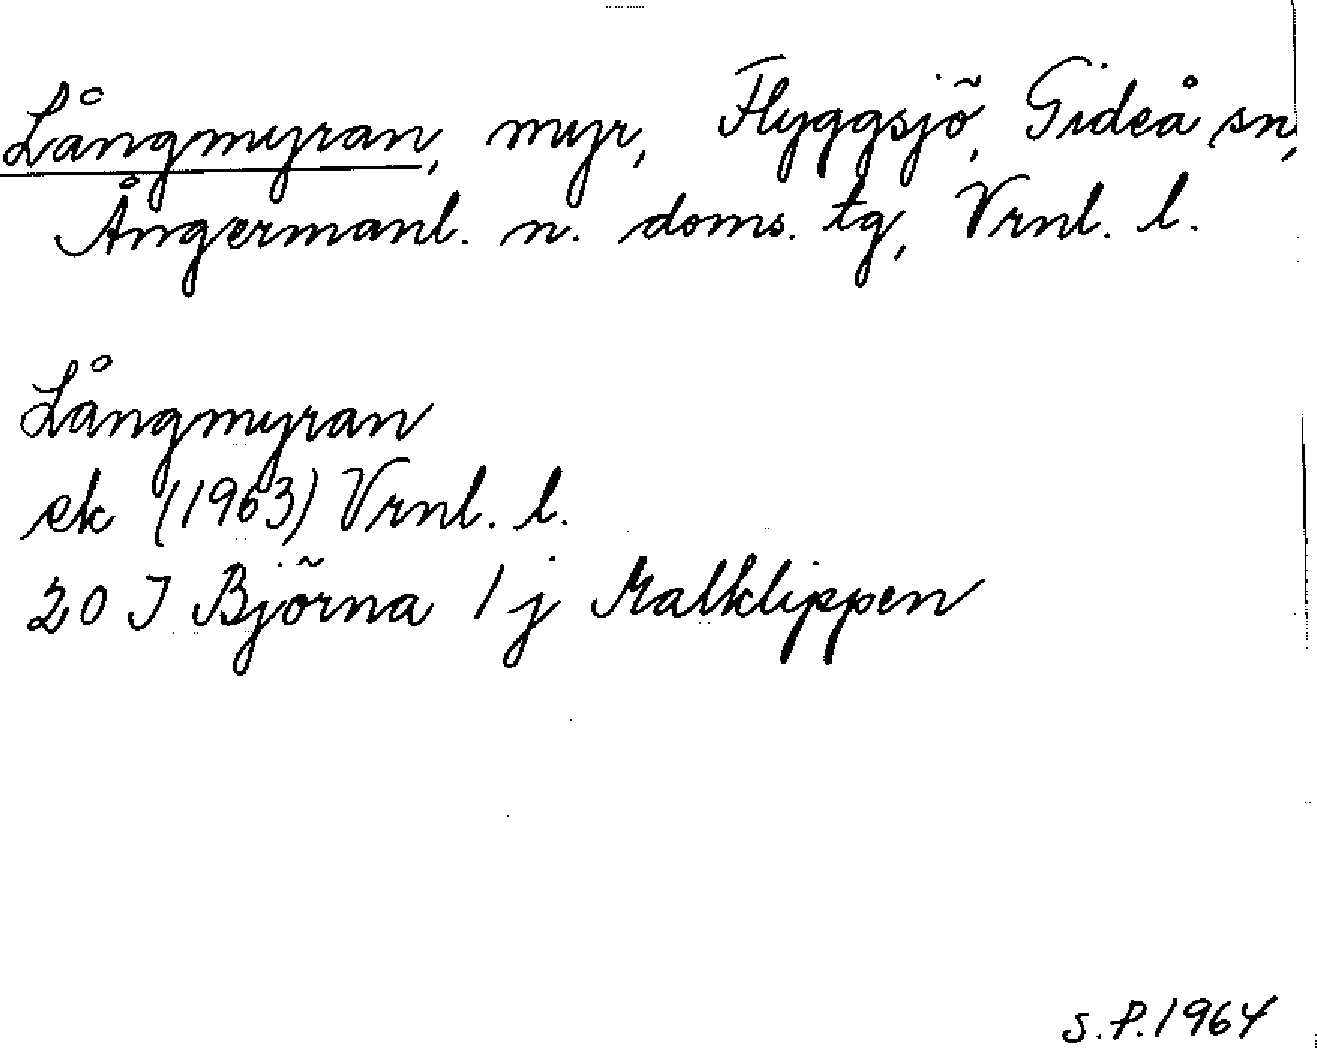 Långmyran, myr, Flyggsjö, Gideå sn,
Ångermanl. n. doms. tg, Vrnl. l.
Långmyran
ek (1963) Vrnl. l.
20 I Björna 1 j Malklippen
S.P. 1964